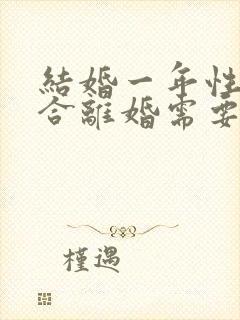 結婚一年性
合離婚需要
槿遇